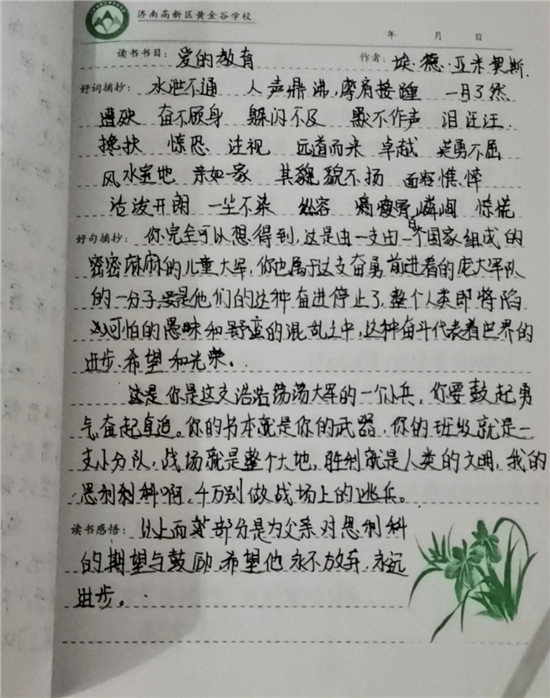 济南高新区黄金谷学校
年 月 日
读书书目: 爱的教育 作者: 埃·德·亚米契斯.
好词摘抄: 水泄不通 人声鼎沸,摩肩接踵 一目了然
遭殃 奋不顾身 躲闪不及 默不作声 泪汪汪
搀扶 惊恐 注视 远道而来 卓越 英勇不屈
风水宝地 亲如一家 其貌不扬 面容憔悴
活泼开朗 一尘不染 从容 瘦骨嶙峋 惊慌
好句摘抄: 你完全可以想得到,这是由一支由一个国家组成的
密密麻麻的儿童大军,你也属于这支奋勇前进着的庞大军队
的一分子,要是他们的这种奋进停止了,整个人类即将陷
入可怕的愚昧和野蛮的混乱之中,这种奋斗代表着世界的
进步.希望和光荣.
这是你是这支浩浩荡荡大军的一个小兵,你要鼓起勇
气奋起直追。你的书本就是你的武器,你的班级就是一
支小分队,战场就是整个大地,胜利就是人类的文明,我的
恩利科啊,千万别做战场上的逃兵。
读书感悟: 以上部分是为父亲对恩利科
的期望与鼓励,希望他永不放弃,永远
进步。